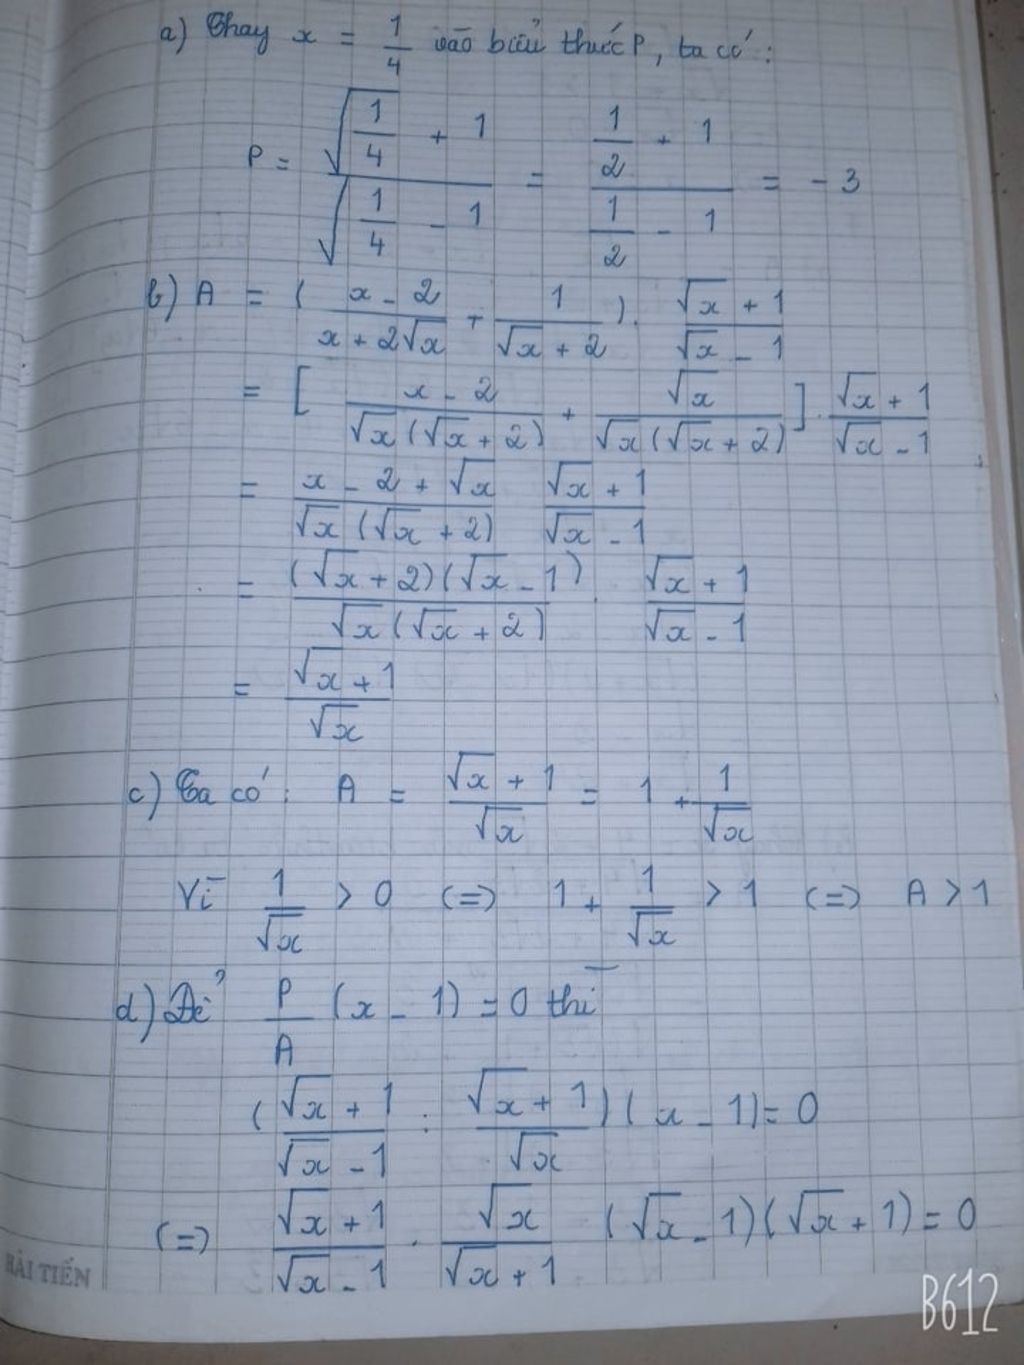 a) Thay x = 1/4 vào biểu thức P, ta có:
P = (√(1/4) + 1)/(√(1/4) - 1) = (1/2 + 1)/(1/2 - 1) = -3
b) A = ((x - 2)/(x + 2√x) + 1/(√x + 2)). (√x + 1)/(√x - 1)
= [(x - 2)/(√x(√x + 2)) + √x/(√x(√x + 2))]. (√x + 1)/(√x - 1)
= (x - 2 + √x)/(√x(√x + 2)) (√x + 1)/(√x - 1)
= ((√x + 2)(√x - 1))/(√x(√x + 2)) . (√x + 1)/(√x - 1)
= (√x + 1)/√x
c) Ta có: A = (√x + 1)/√x = 1 + 1/√x
Vì 1/√x > 0 (=) 1 + 1/√x > 1 (=) A > 1
d) Để P/A (x - 1) = 0 thì
((√x + 1)/(√x - 1) : (√x + 1)/√x)(x - 1) = 0
(=) (√x + 1)/(√x - 1) . √x/(√x + 1) (√x - 1)(√x + 1) = 0
HẢI TIẾN
B612